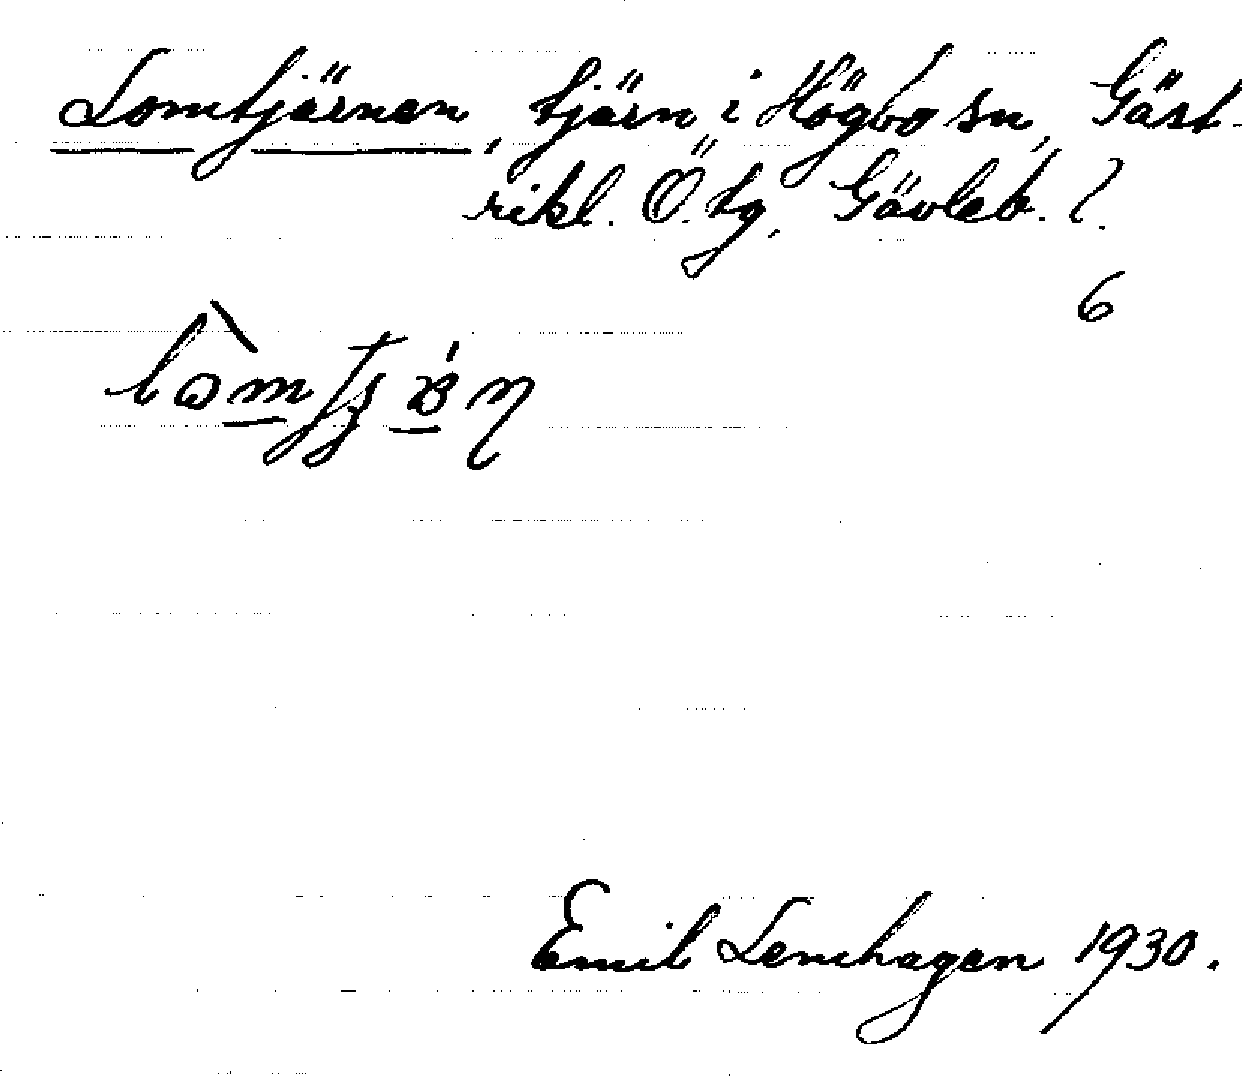 Lomtjärnen, tjärn i Högbo sn, Gäst-
rikl. Ö. tg, Gävleb. l.
6
Emil Lenhagen 1930.